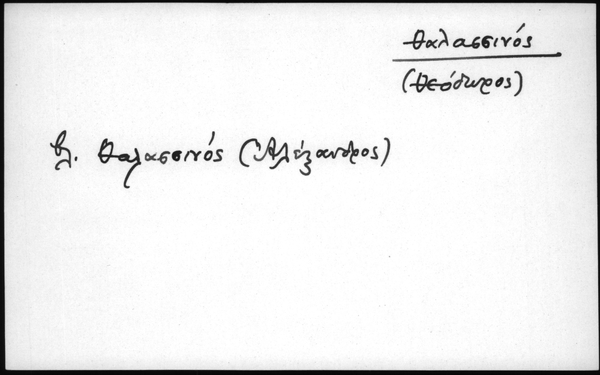 Θαλασσινός
(Θεόδωρος)
βλ. Θαλασσινός (Ἀλέξανδρος)